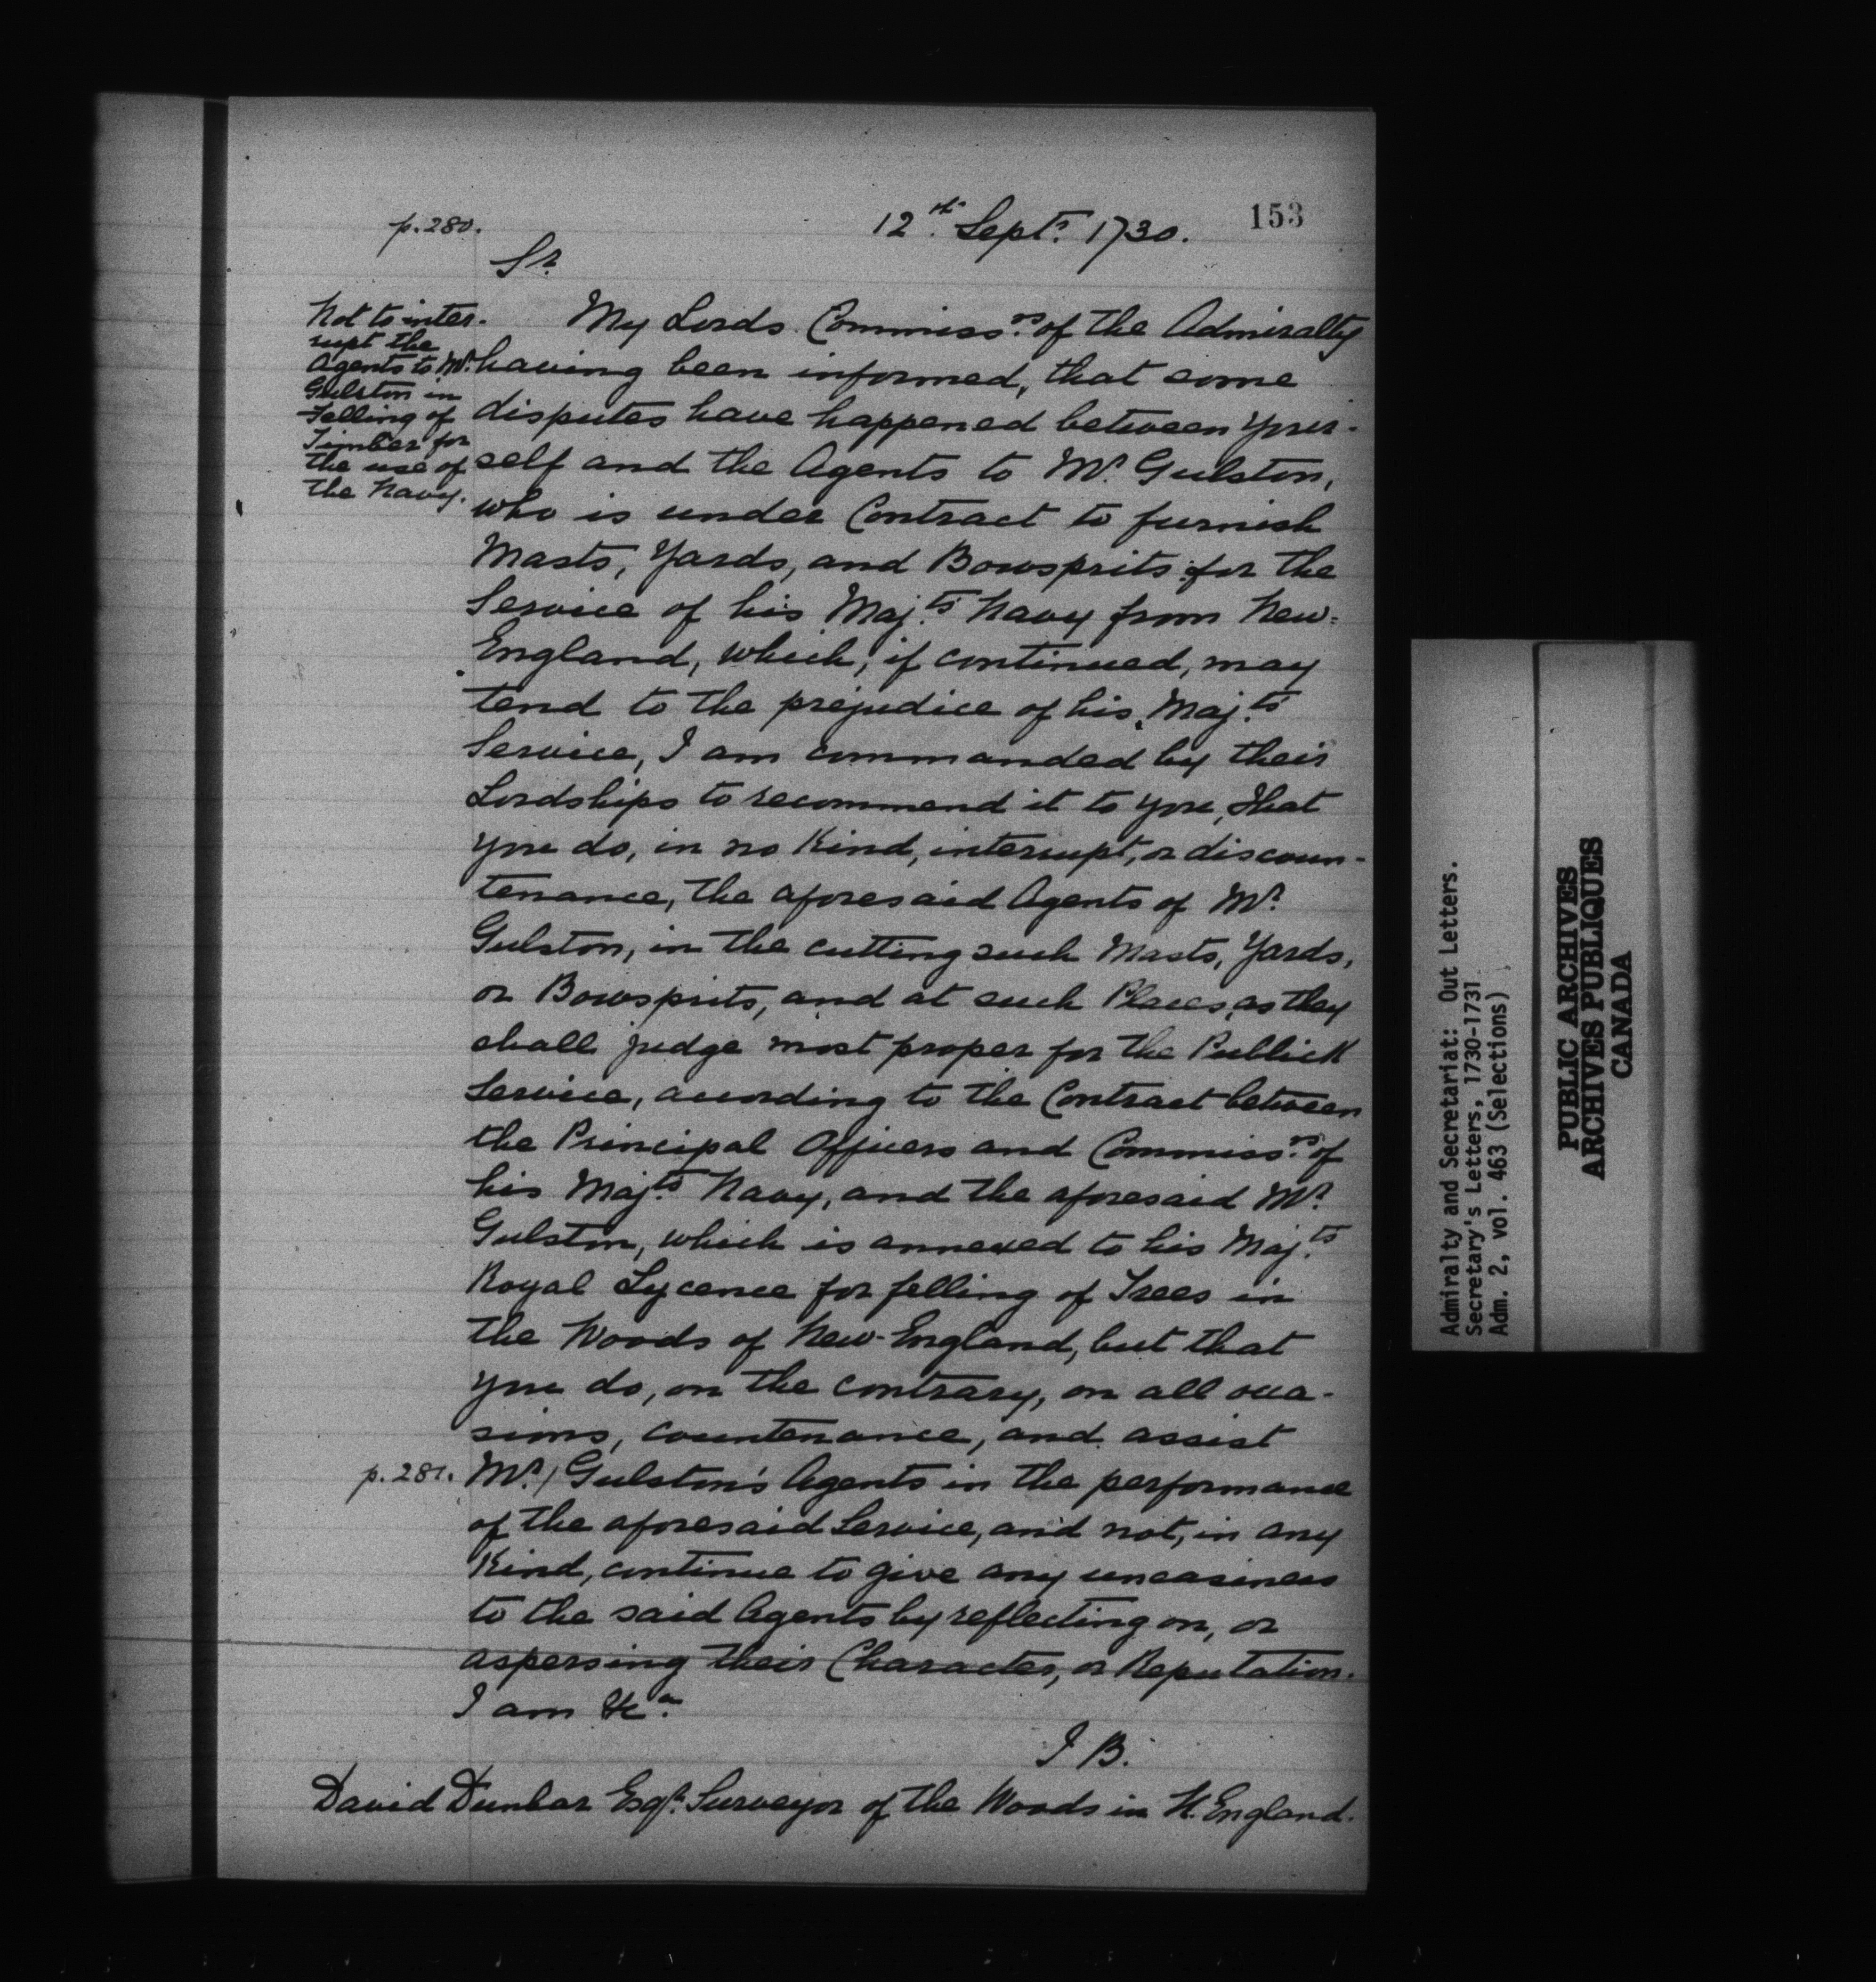 p. 280.
12th. Septr. 1730.
153
Sr.
Not to inter-
rupt the
Agents to Mr.
Gulston in
Felling of
Timber for
the use of
the Navy.
My Lords Commissrs. of the Admiralty
having been informed, that some
disputes have happened between your-
self and the Agents to Mr. Gulston,
who is under Contract to furnish
Masts, Yards, and Bowsprits for the
Service of his Majts. Navy from New-
England, which, if continued, may
tend to the prejudice of his Majts.
Service, I am commanded by their
Lordships to recommend it to you, that
you do, in no Kind, interrupt, or discoun-
tenance, the aforesaid Agents of Mr.
Gulston, in the cutting such Masts, Yards,
or Bowsprits, and at such Places, as they
shall judge most proper for the Publick
Service, according to the Contract between
the Principal Officers and Commissrs. of
his Majts. Navy, and the aforesaid Mr.
Gulston, which is annexed to his Majts.
Royal Lycence for felling of Trees in
the Woods of New-England, but that
you do, on the contrary, on all occa-
sions, countenance, and assist
p. 281. Mr./ Gulston's Agents in the performance
of the aforesaid Service, and not, in any
Kind, continue to give any uneasiness
to the said Agents by reflecting on, or
aspersing their Character, or Reputation.
I am &ca.
J B.
David Dunbar Esqr. Surveyor of the Woods in N. England.
Admiralty and Secretariat: Out Letters.
Secretary's Letters, 1730-1731
Adm. 2, vol. 463 (Selections)
PUBLIC ARCHIVES
ARCHIVES PUBLIQUES
CANADA